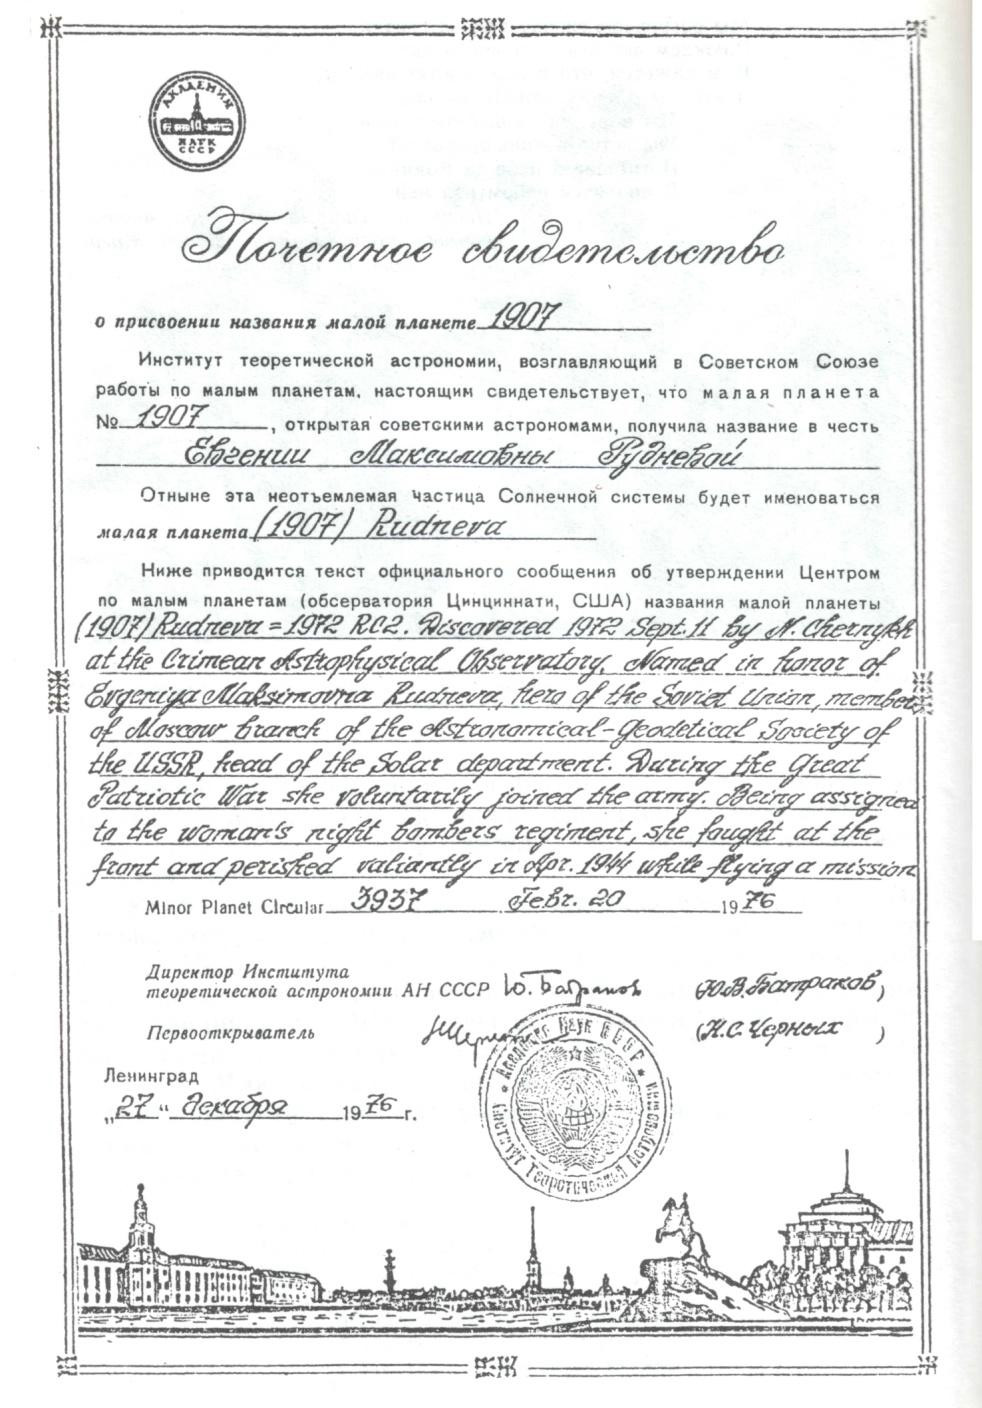 АКАДЕМИЯ
НАУК
СССР
Почетное свидетельство
о присвоении названия малой планете 1907
Институт теоретической астрономии, возглавляющий в Советском Союзе
работы по малым планетам, настоящим свидетельствует, что малая планета
№ 1907, открытая советскими астрономами, получила название в честь
Евгении Максимовны Рудневой
Отныне эта неотъемлемая частица Солнечной системы будет именоваться
малая планета (1907) Rudneva
Ниже приводится текст официального сообщения об утверждении Центром
по малым планетам (обсерватория Цинциннати, США) названия малой планеты
(1907) Rudneva = 1972 RC2. Discovered 1972 Sept. 11 by N. Chernykh
at the Crimean Astrophysical Observatory. Named in honor of
Evgeniya Maksimovna Rudneva, hero of the Soviet Union, member
of Moscow branch of the Astronomical-Geodetical Society of
the USSR, head of the Solar department. During the Great
Patriotic War she voluntarily joined the army. Being assigned
to the woman's night bombers regiment, she fought at the
front and perished valiantly in Apr. 1944 while flying a mission
Minor Planet Circular 3937 Febr. 20 1976
Директор Института
теоретической астрономии АН СССР Ю. Батраков (Ю.В. Батраков)
Первооткрыватель НЧерных (Н.С. Черных)
Академия Наук СССР
Институт Теоретической Астрономии
Ленинград
„27“ декабря 1976 г.